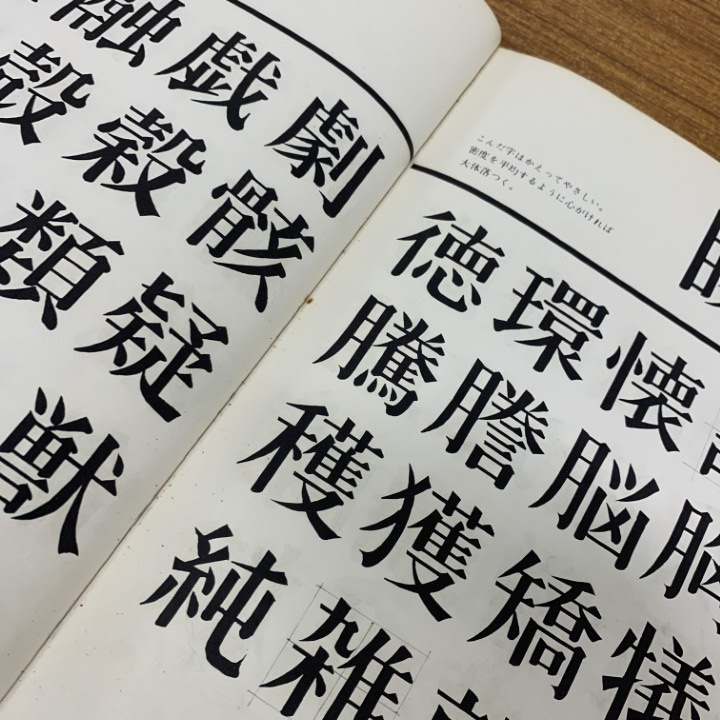 融戯劇
殻穀骸
類疑
獣
こんだ字はかえってやさしい。
密度を平均するように心がければ
大体落つく。
徳環懐
騰謄脳胸
穫獲矯犠
純雑